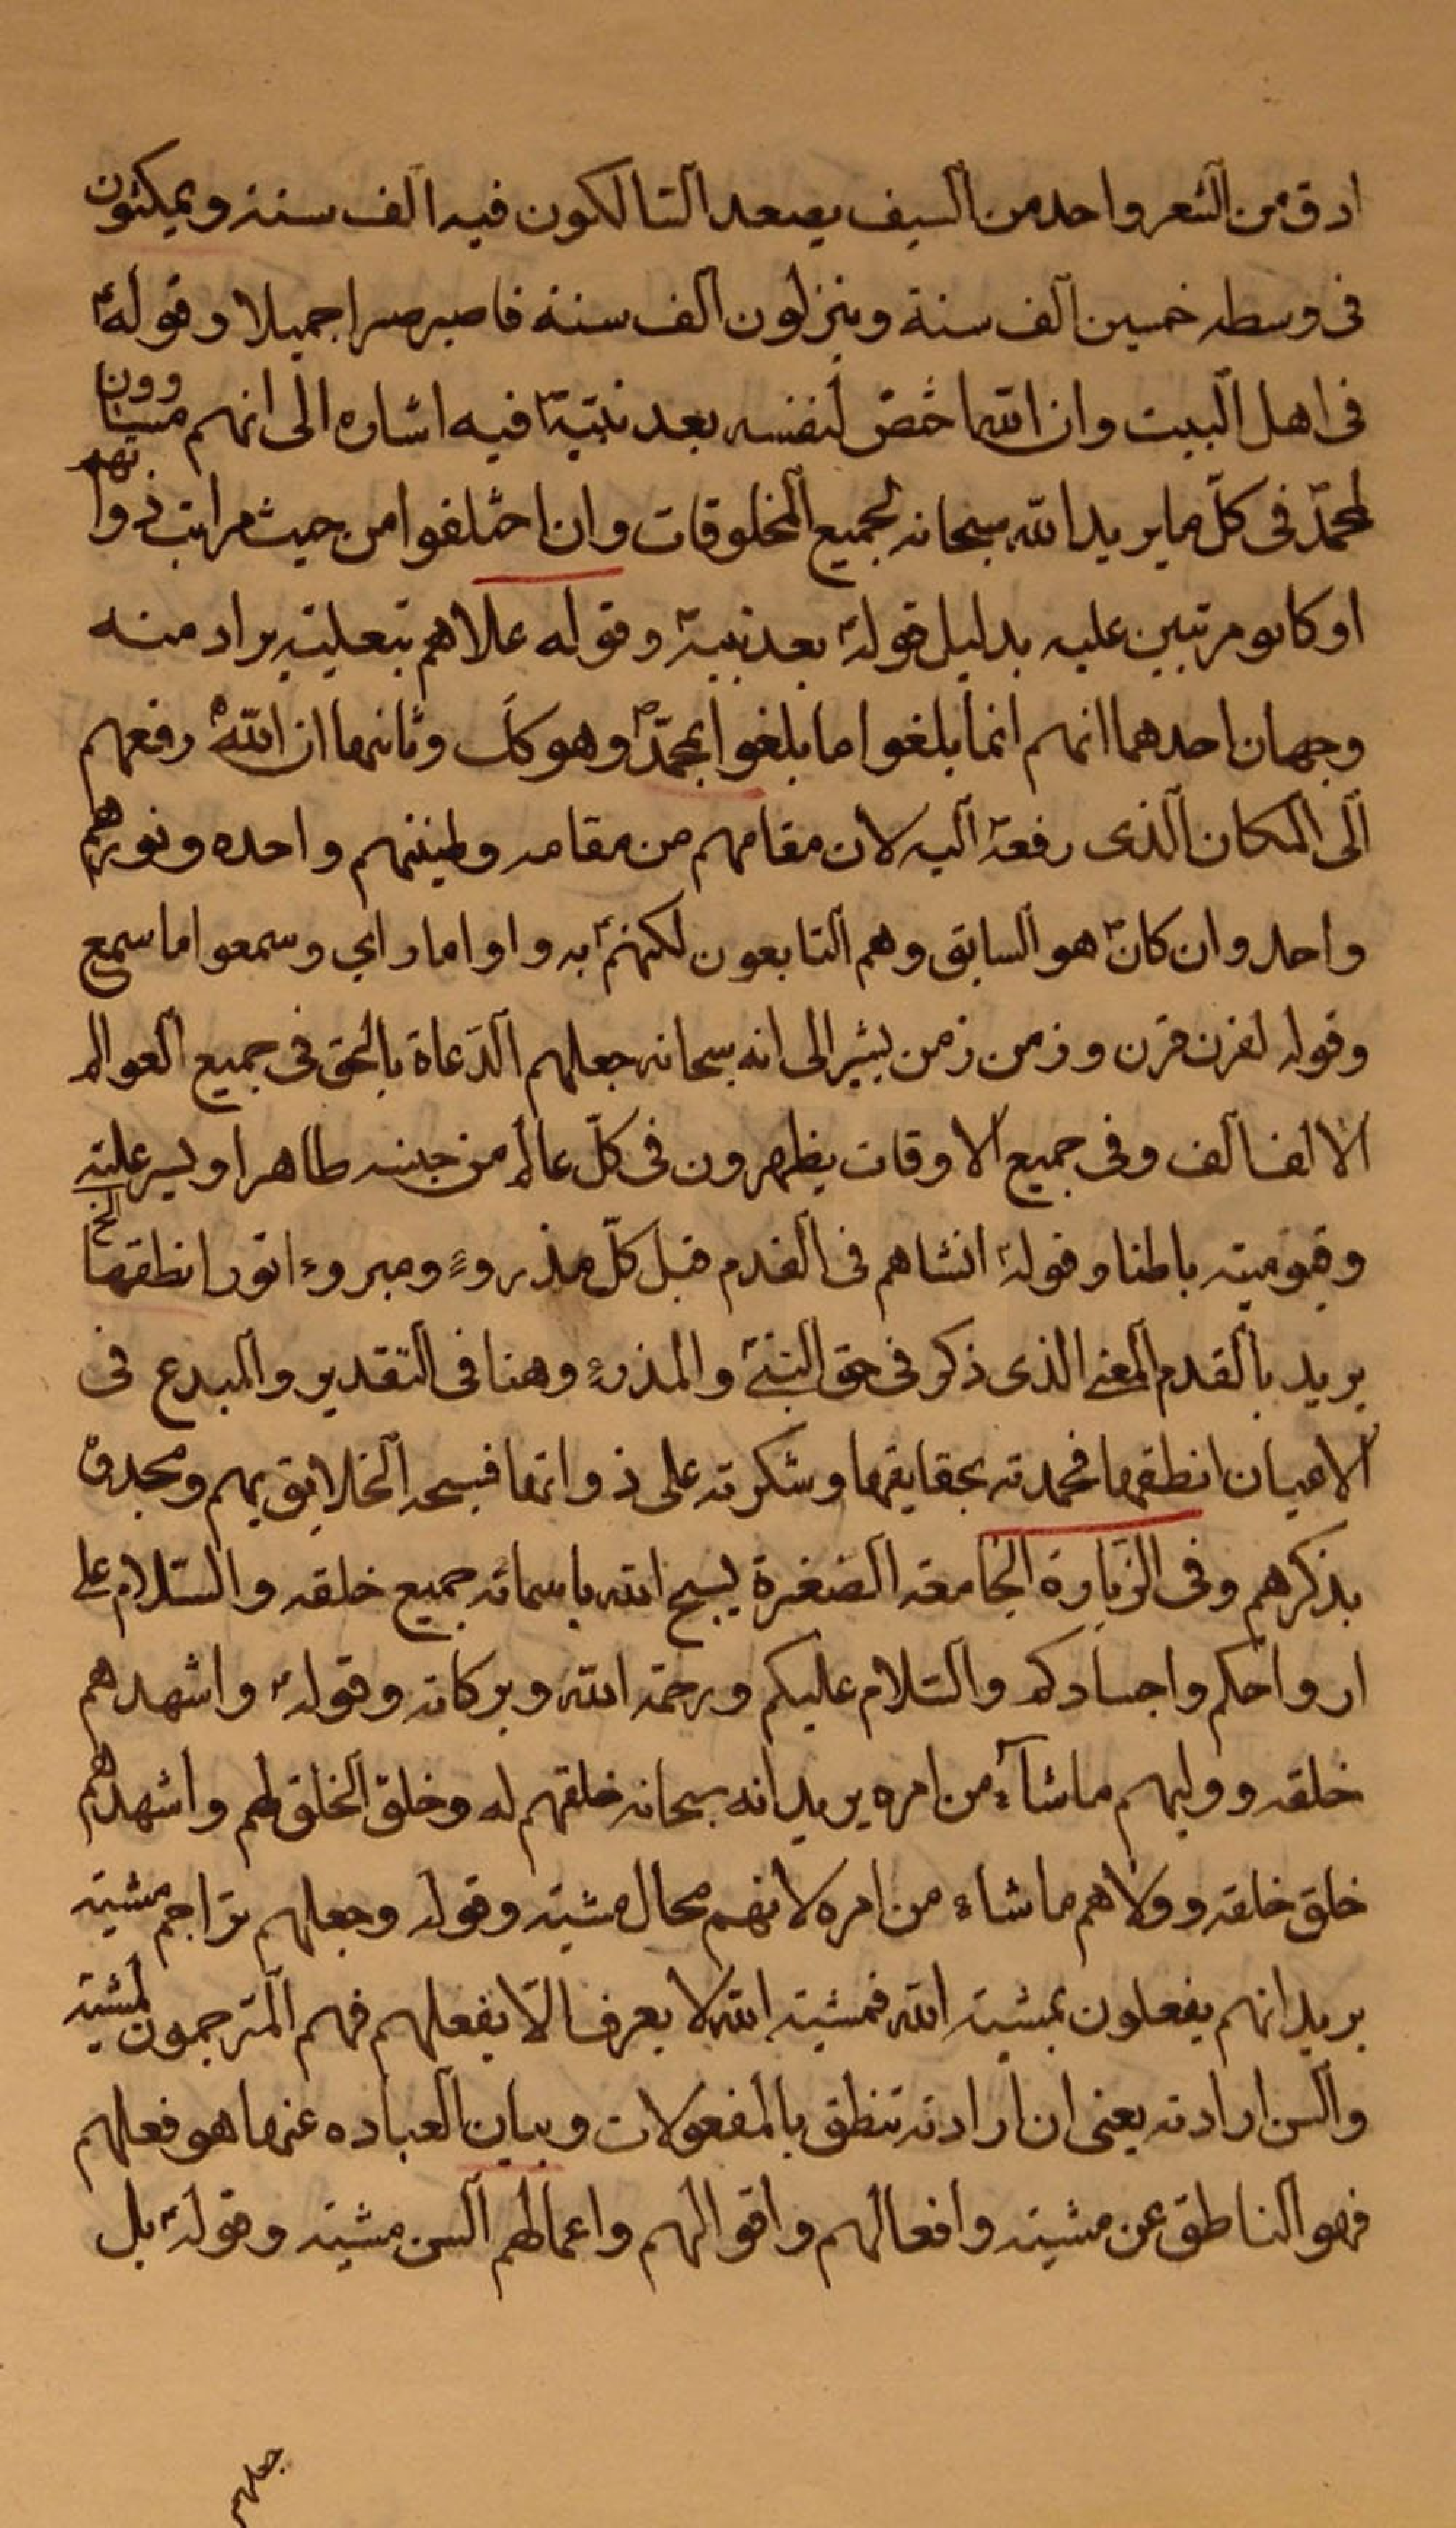 ادق من الشعر واحد من السيف يصعد السالكون فيه الف سنة ويمكثون
فى وسطه خمسين الف سنة وينزلون الف سنة فاصبر صبرا جميلا وقوله ع
فى اهل البيت وان الله اختص لنفسه بعد نبيّه ص فيه اشاره الى انهم مساوون
لمحمّد فى كلّ ما يريد الله سبحانه لجميع المخلوقات وان اختلفوا من حيث مراتب ذواتهم
او كانو مرتبين عليه بدليل قوله ع بعد نبيه ص وقوله علاهم بتعليته يراد منه
وجهان احدهما انهم انما بلغوا ما بلغوا بمحمّد ص وهو كك وثانيهما ان الله رفعهم
الى المكان الذى رفعه اليه لان مقامهم من مقامه وطينتهم واحده ونورهم
واحد وان كان ص هو السابق وهم التابعون لكنهم به راوا ما راى وسمعوا ما سمع
وقوله لقرن قرن وزمن زمن يشير الى انه سبحانه جعلهم الدعاة بالحق فى جميع العوالم
الالف الف وفى جميع الاوقات يظهرون فى كلّ عالم من جنسه ظاهرا وبسر عليته
وقيوميته باطنا وقوله ع انشاهم فى القدم قبل كلّ مذروء ومبروء انورا انطقها الخ
يريد بالقدم المعنى الذى ذكر فى حق النبى ص والمذروء وهنا فى التقدير والمبدع فى
الاعيان انطقها فحمدته بحقايقها وشكرته على ذواتها فسبحه الخلايق بهم ومجدوه
بذكرهم وفى الزيارة الجامعة الصغيرة يسبح الله باسمائه جميع خلقه والسلام على
ارواحكم واجسادكم والسلام عليكم ورحمة الله وبركاته وقوله ع واشهدهم
خلقه ووليهم ما شآء من امره يريد انه سبحانه خلقهم له وخلق الخلق لهم واشهدهم
خلق خلقه وولاهم ما شاء من امره لانهم محال مشيته وقوله وجعلهم تراجم مشيته
يريد انهم يفعلون بمشية الله فمشية الله لا يعرف الا بفعلهم فهم المترجمون لمشيته
والسن ارادته يعنى ان ارادته تنطق بالمفعولات وبيان العباره عنها هو فعلهم
فهو الناطق عن مشيته وافعالهم واقوالهم واعمالهم السن مشيته وقوله ع بل
جعلهم